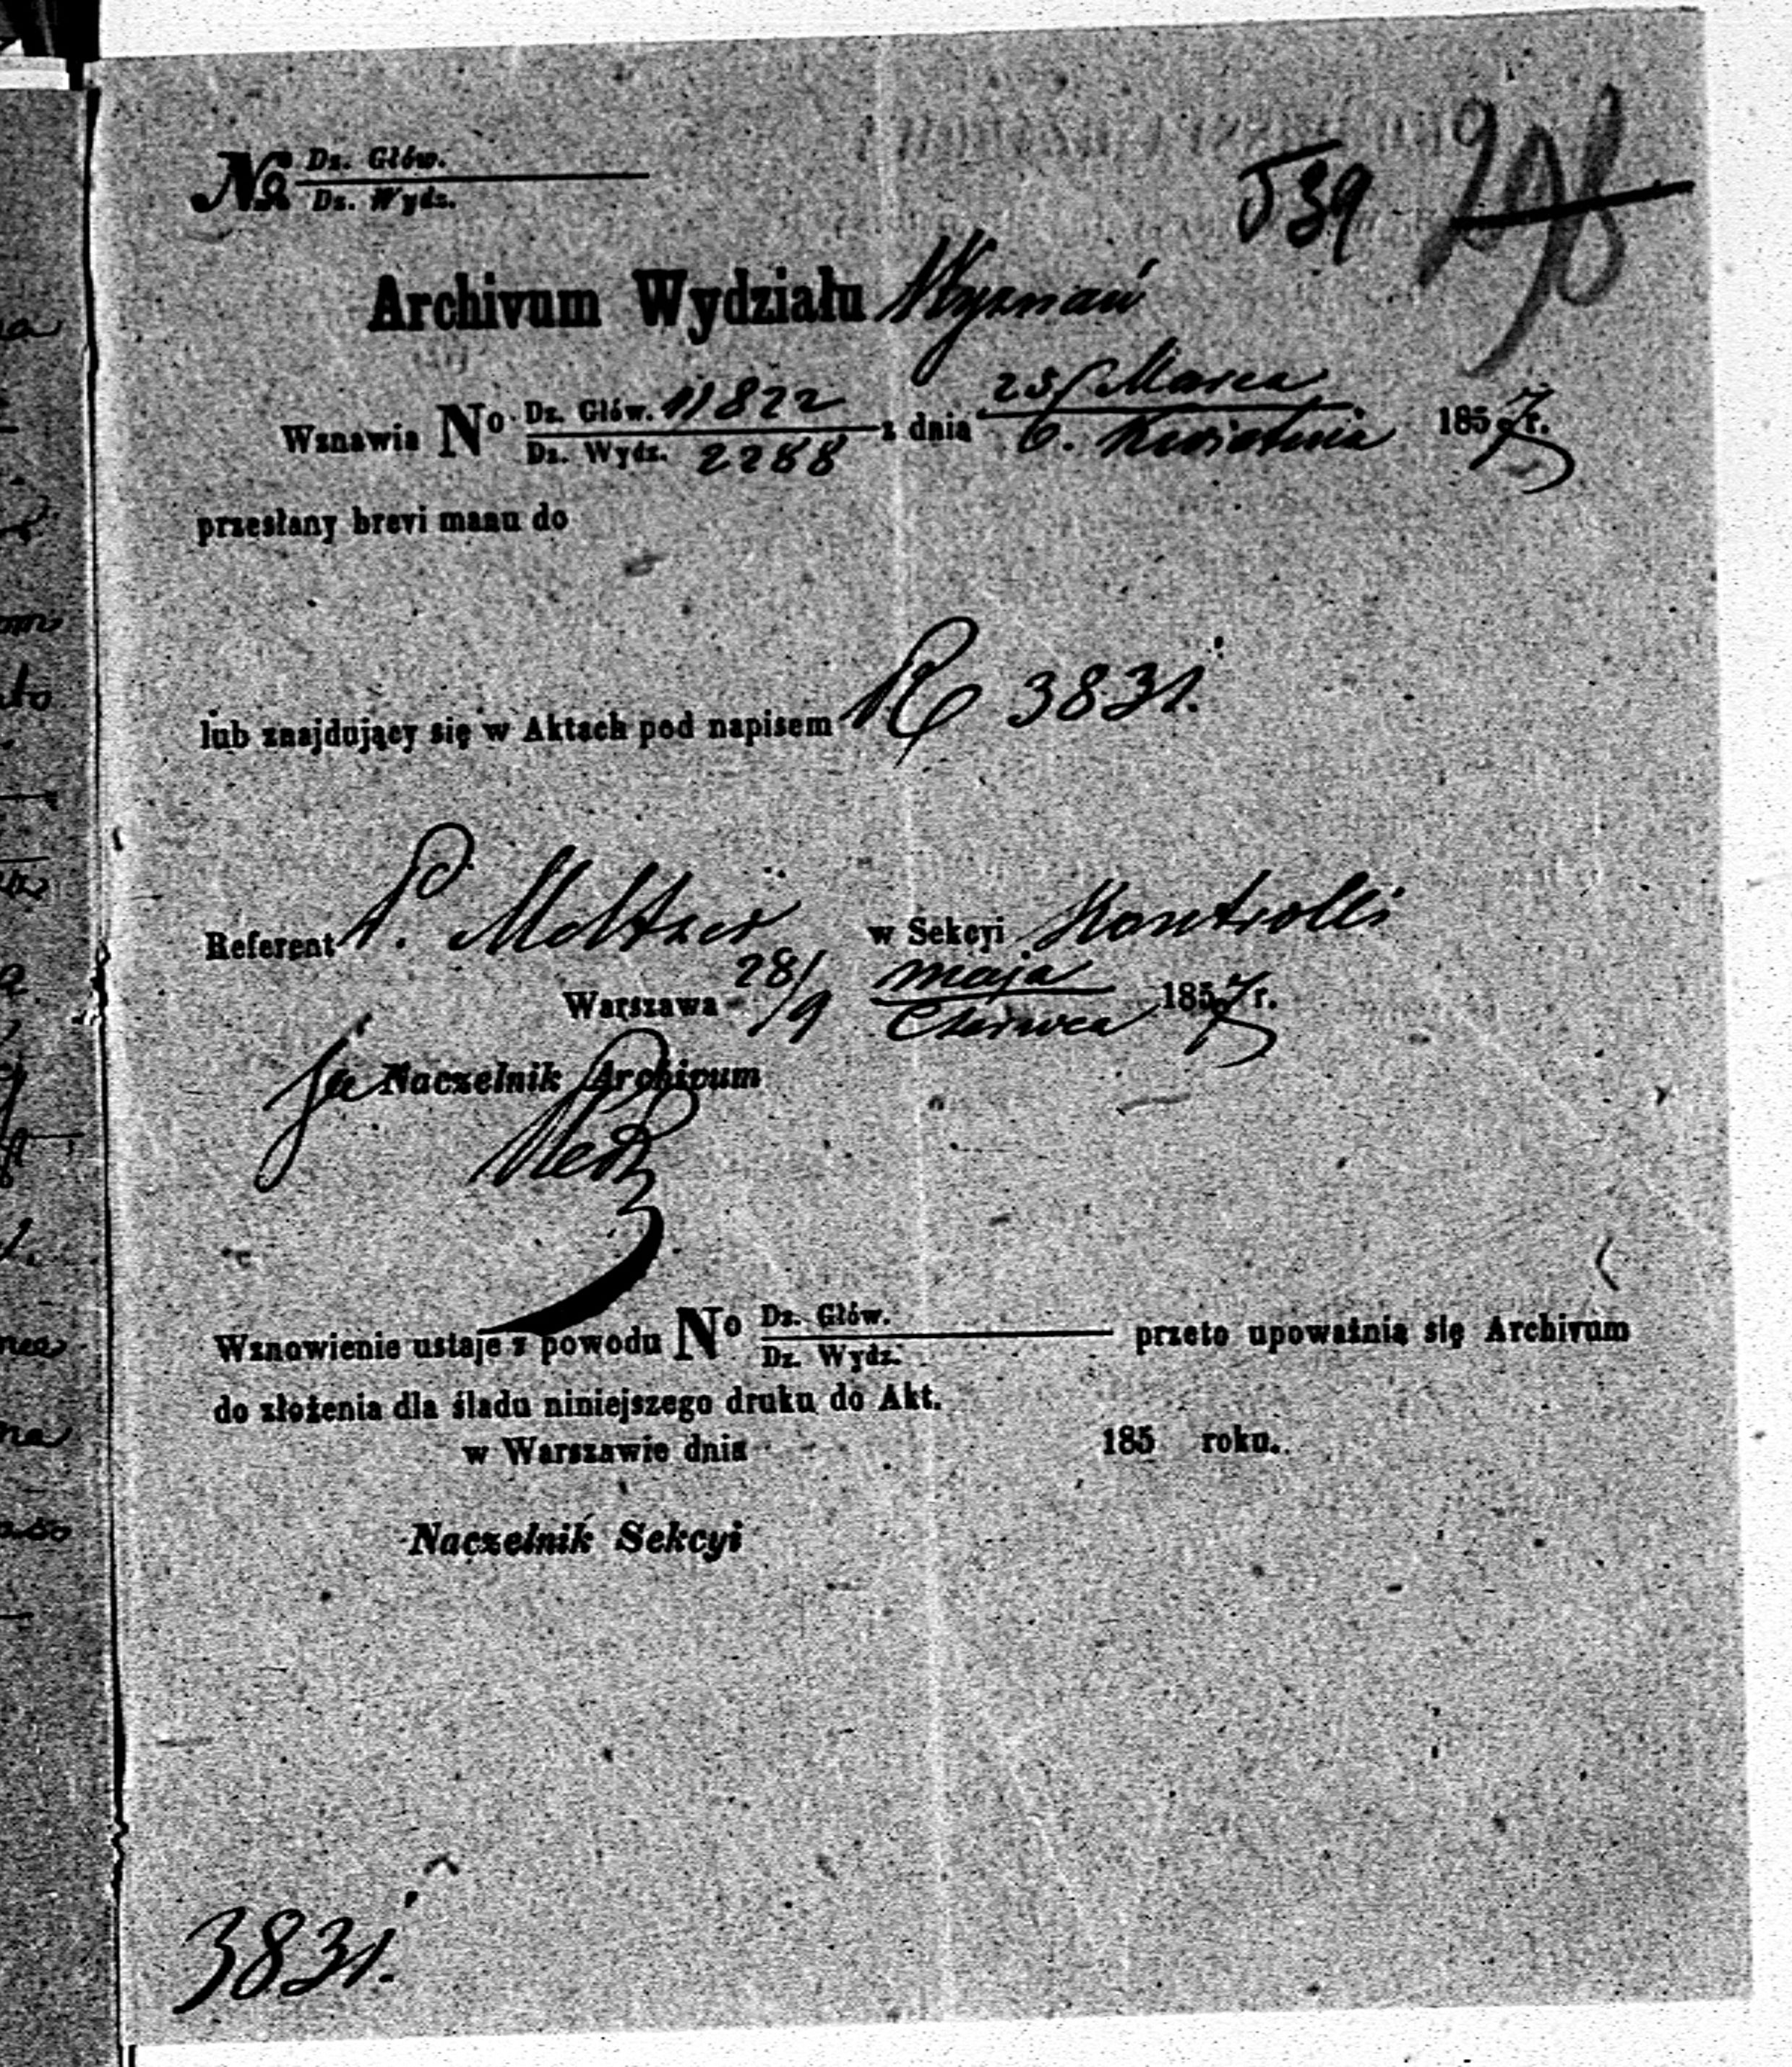 № Dz. Głów.
Dz. Wydz.
539 298
Archivum Wydziału Wyznań
Wznawia No. Dz. Głów. 11822 z dnia 25/ Marca 1857 r.
Dz. Wydz. 2288 6. Kwietnia
przesłany brevi manu do
lub znajdujący się w Aktach pod napisem R 3831.
Referent P. Meltzer w Sekcyi Kontrolli
Warszawa 28/9 maja 1857 r.
Czerwca
Naczelnik Archivum
Wznowienie ustaje z powodu No Dz. Głów. przeto upoważnia się Archivum
Dz. Wydz.
do złożenia dla śladu niniejszego druku do Akt.
w Warszawie dnia 185 roku.
Naczelnik Sekcyi
3831.